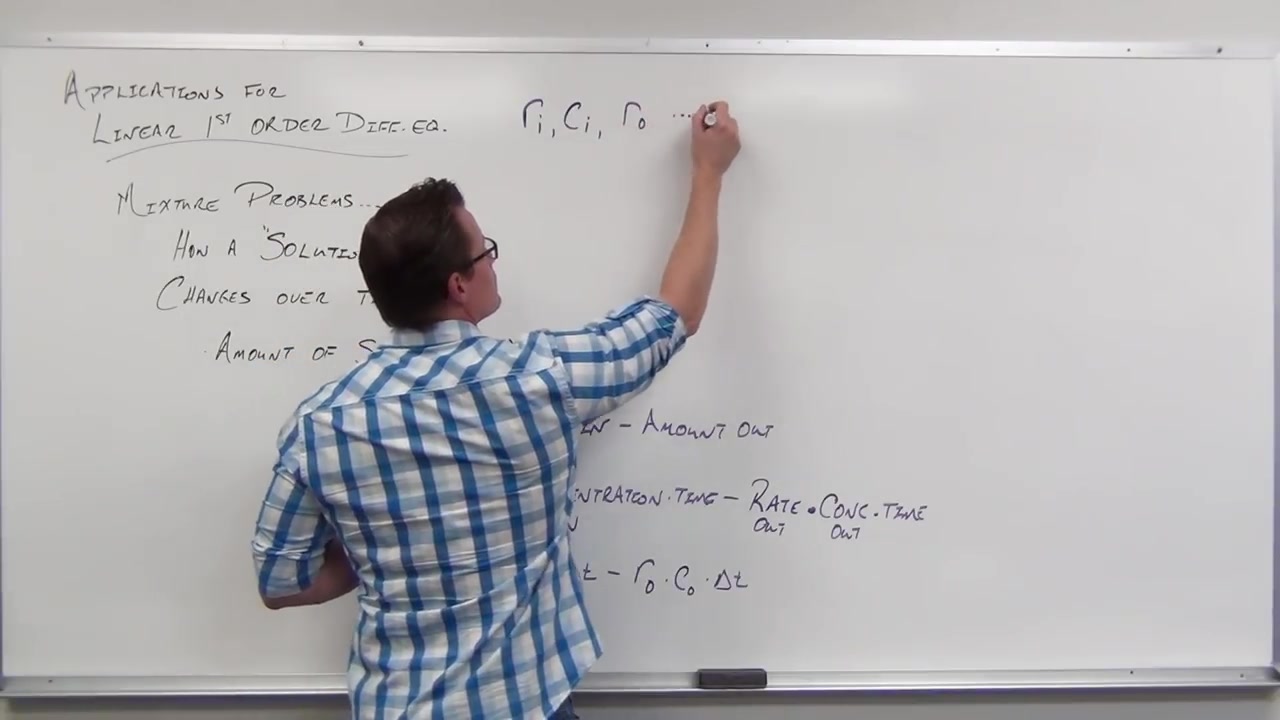 APPLICATIONS FOR
LINEAR 1ST ORDER DIFF. EQ.
MIXTURE PROBLEMS...
HOW A "SOLUTIO
CHANGES OVER T
AMOUNT OF S
ri, Ci, ro ...
IN - AMOUNT OUT
NTRATION · TIME - RATE · CONC · TIME
OUT OUT
t - ro · Co · Δt